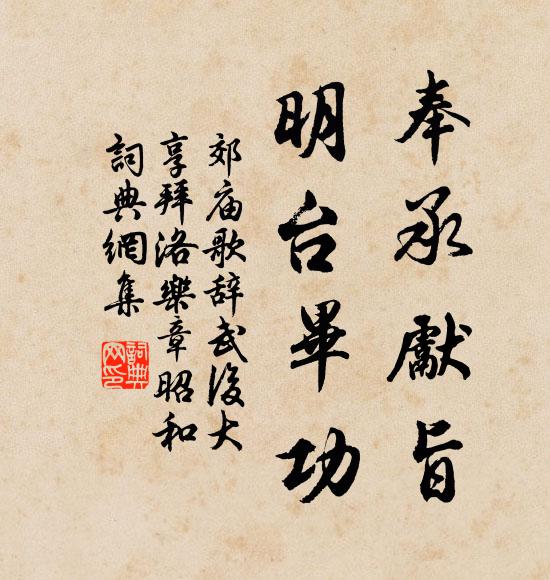 奉承獻旨
明台畢功
郊庙歌辞武後大
享拜洛樂章昭和
詞典網集
詞典
网印